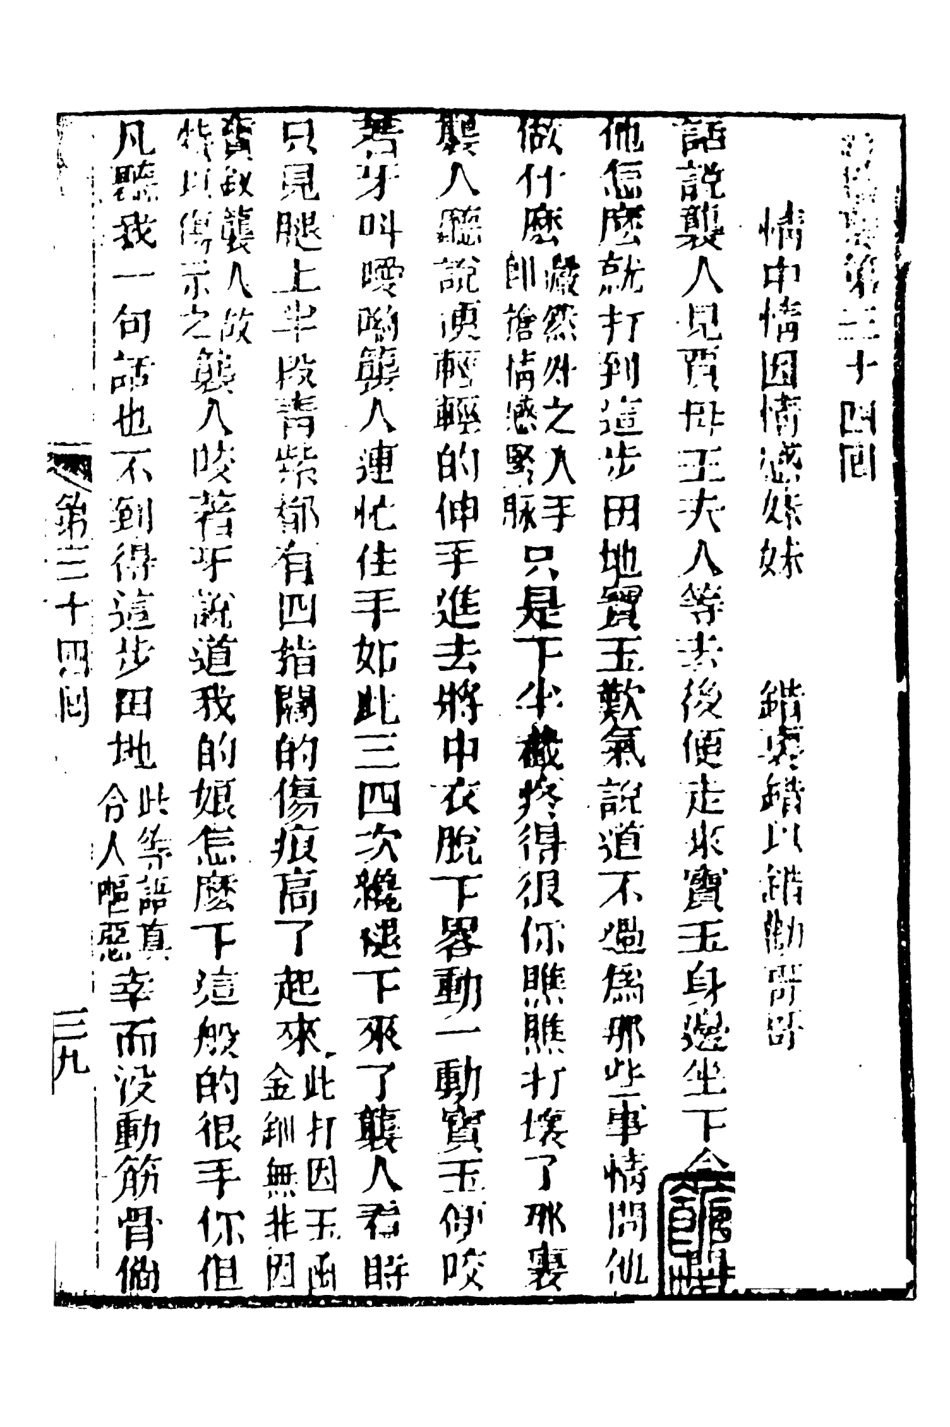 紅樓夢第三十四回
情中情因情感妹妹 錯裏錯以錯勸哥哥
話說襲人見賈母王夫人等去後便走來寶玉身邊坐下含
他怎麼就打到這步田地寶玉歎氣說道不過爲那些事情問他
做什麼 嚴然外之人手
卽擔情感緊脈 只是下半截疼得很你瞧瞧打壞了那裏
襲人聽說便輕輕的伸手進去將中衣脫下畧動一動寶玉便咬
着牙叫噯喲襲人連忙住手如此三四次纔褪下來了襲人看時
只見腿上半段青紫都有四指闊的傷痕高了起來 此打因玉函
金釧無非因
寶釵襲人故
特以傷示之 襲人咬著牙說道我的娘怎麼下這般的很手你但
凡聽我一句話也不到得這步田地 此等語真
令人嘔惡 幸而没動筋骨倘
第三十四回
三九